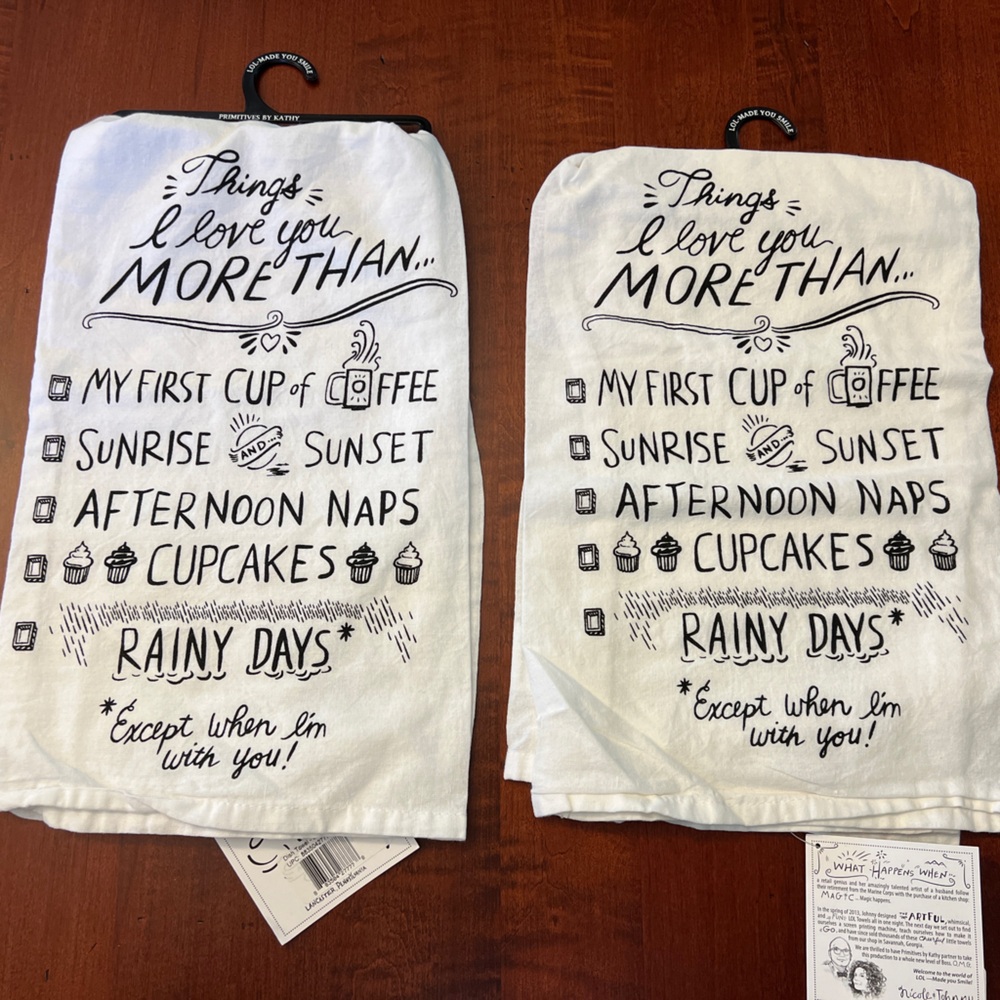 LOL-MADE YOU SMILE
PRIMITIVES BY KATHY
Things
I love you
MORE THAN...
MY FIRST CUP of COFFEE
SUNRISE AND... SUNSET
AFTERNOON NAPS
CUPCAKES
RAINY DAYS*
*Except when I'm
with you!
Dish Towel
UPC:
LANCASTER, PENNSYLVANIA
LOL-MADE YOU SMILE
Things
I love you
MORE THAN...
MY FIRST CUP of COFFEE
SUNRISE AND... SUNSET
AFTERNOON NAPS
CUPCAKES
RAINY DAYS*
*Except when I'm
with you!
WHAT HAPPENS WHEN...
a retail genius and her amazingly talented artist of a husband follow
their retirement from the Marine Corps with the purchase of a kitchen shop:
MAGIC... Magic happens.
In the spring of 2013, Johnny designed ARTFUL, whimsical,
and LOL Towels all in one night. The next day we set out to find
ourselves a screen printing machine, teach ourselves how to make it
GO, and have since sold thousands of these cheerful little towels
from our shop in Savannah, Georgia.
We are thrilled to have Primitives by Kathy partner to take
this production to a whole new level of Bess. O.M.G.
Welcome to the world of
LOL—Made you Smile!
Nicole + Johnny